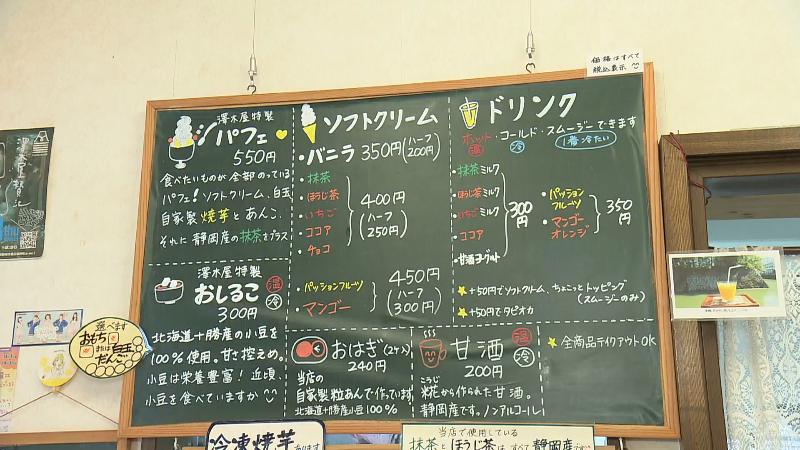 価格はすべて
税込表示
澤木屋特製
パフェ
550円
食べたいものが全部のっている
パフェ!ソフトクリーム、白玉
自家製焼芋とあんこ、
それに静岡産の抹茶をプラス
澤木屋特製
おしるこ
温
冷
300円
北海道十勝産の小豆を
100%使用。甘さ控えめ。
小豆は栄養豊富!近頃、
小豆を食べていますか
ソフトクリーム
・バニラ 350円(ハーフ200円)
・抹茶
・ほうじ茶
・いちご
・ココア
・チョコ
400円
(ハーフ
250円)
・パッションフルーツ
・マンゴー
450円
(ハーフ
300円)
おはぎ(2ケ入)
240円
当店の
自家製粒あんで作っています
北海道十勝産小豆100%
ドリンク
ホット・コールド・スムージーできます
温
冷
1番冷たい
・抹茶ミルク
・ほうじ茶ミルク
・いちごミルク
・ココア
・甘酒ヨーグルト
300円
・パッション
フルーツ
・マンゴー
オレンジ
350円
+50円でソフトクリーム、ちょこっとトッピング
(スムージーのみ)
+50円でタピオカ
甘酒
温
冷
200円
こうじ
糀から作られた甘酒。
静岡産です。ノンアルコール
全商品テイクアウトOK
選べます
おもち
または
白玉
だんご
冷凍焼芋あります
当店で使用している
抹茶とほうじ茶は、すべて静岡産